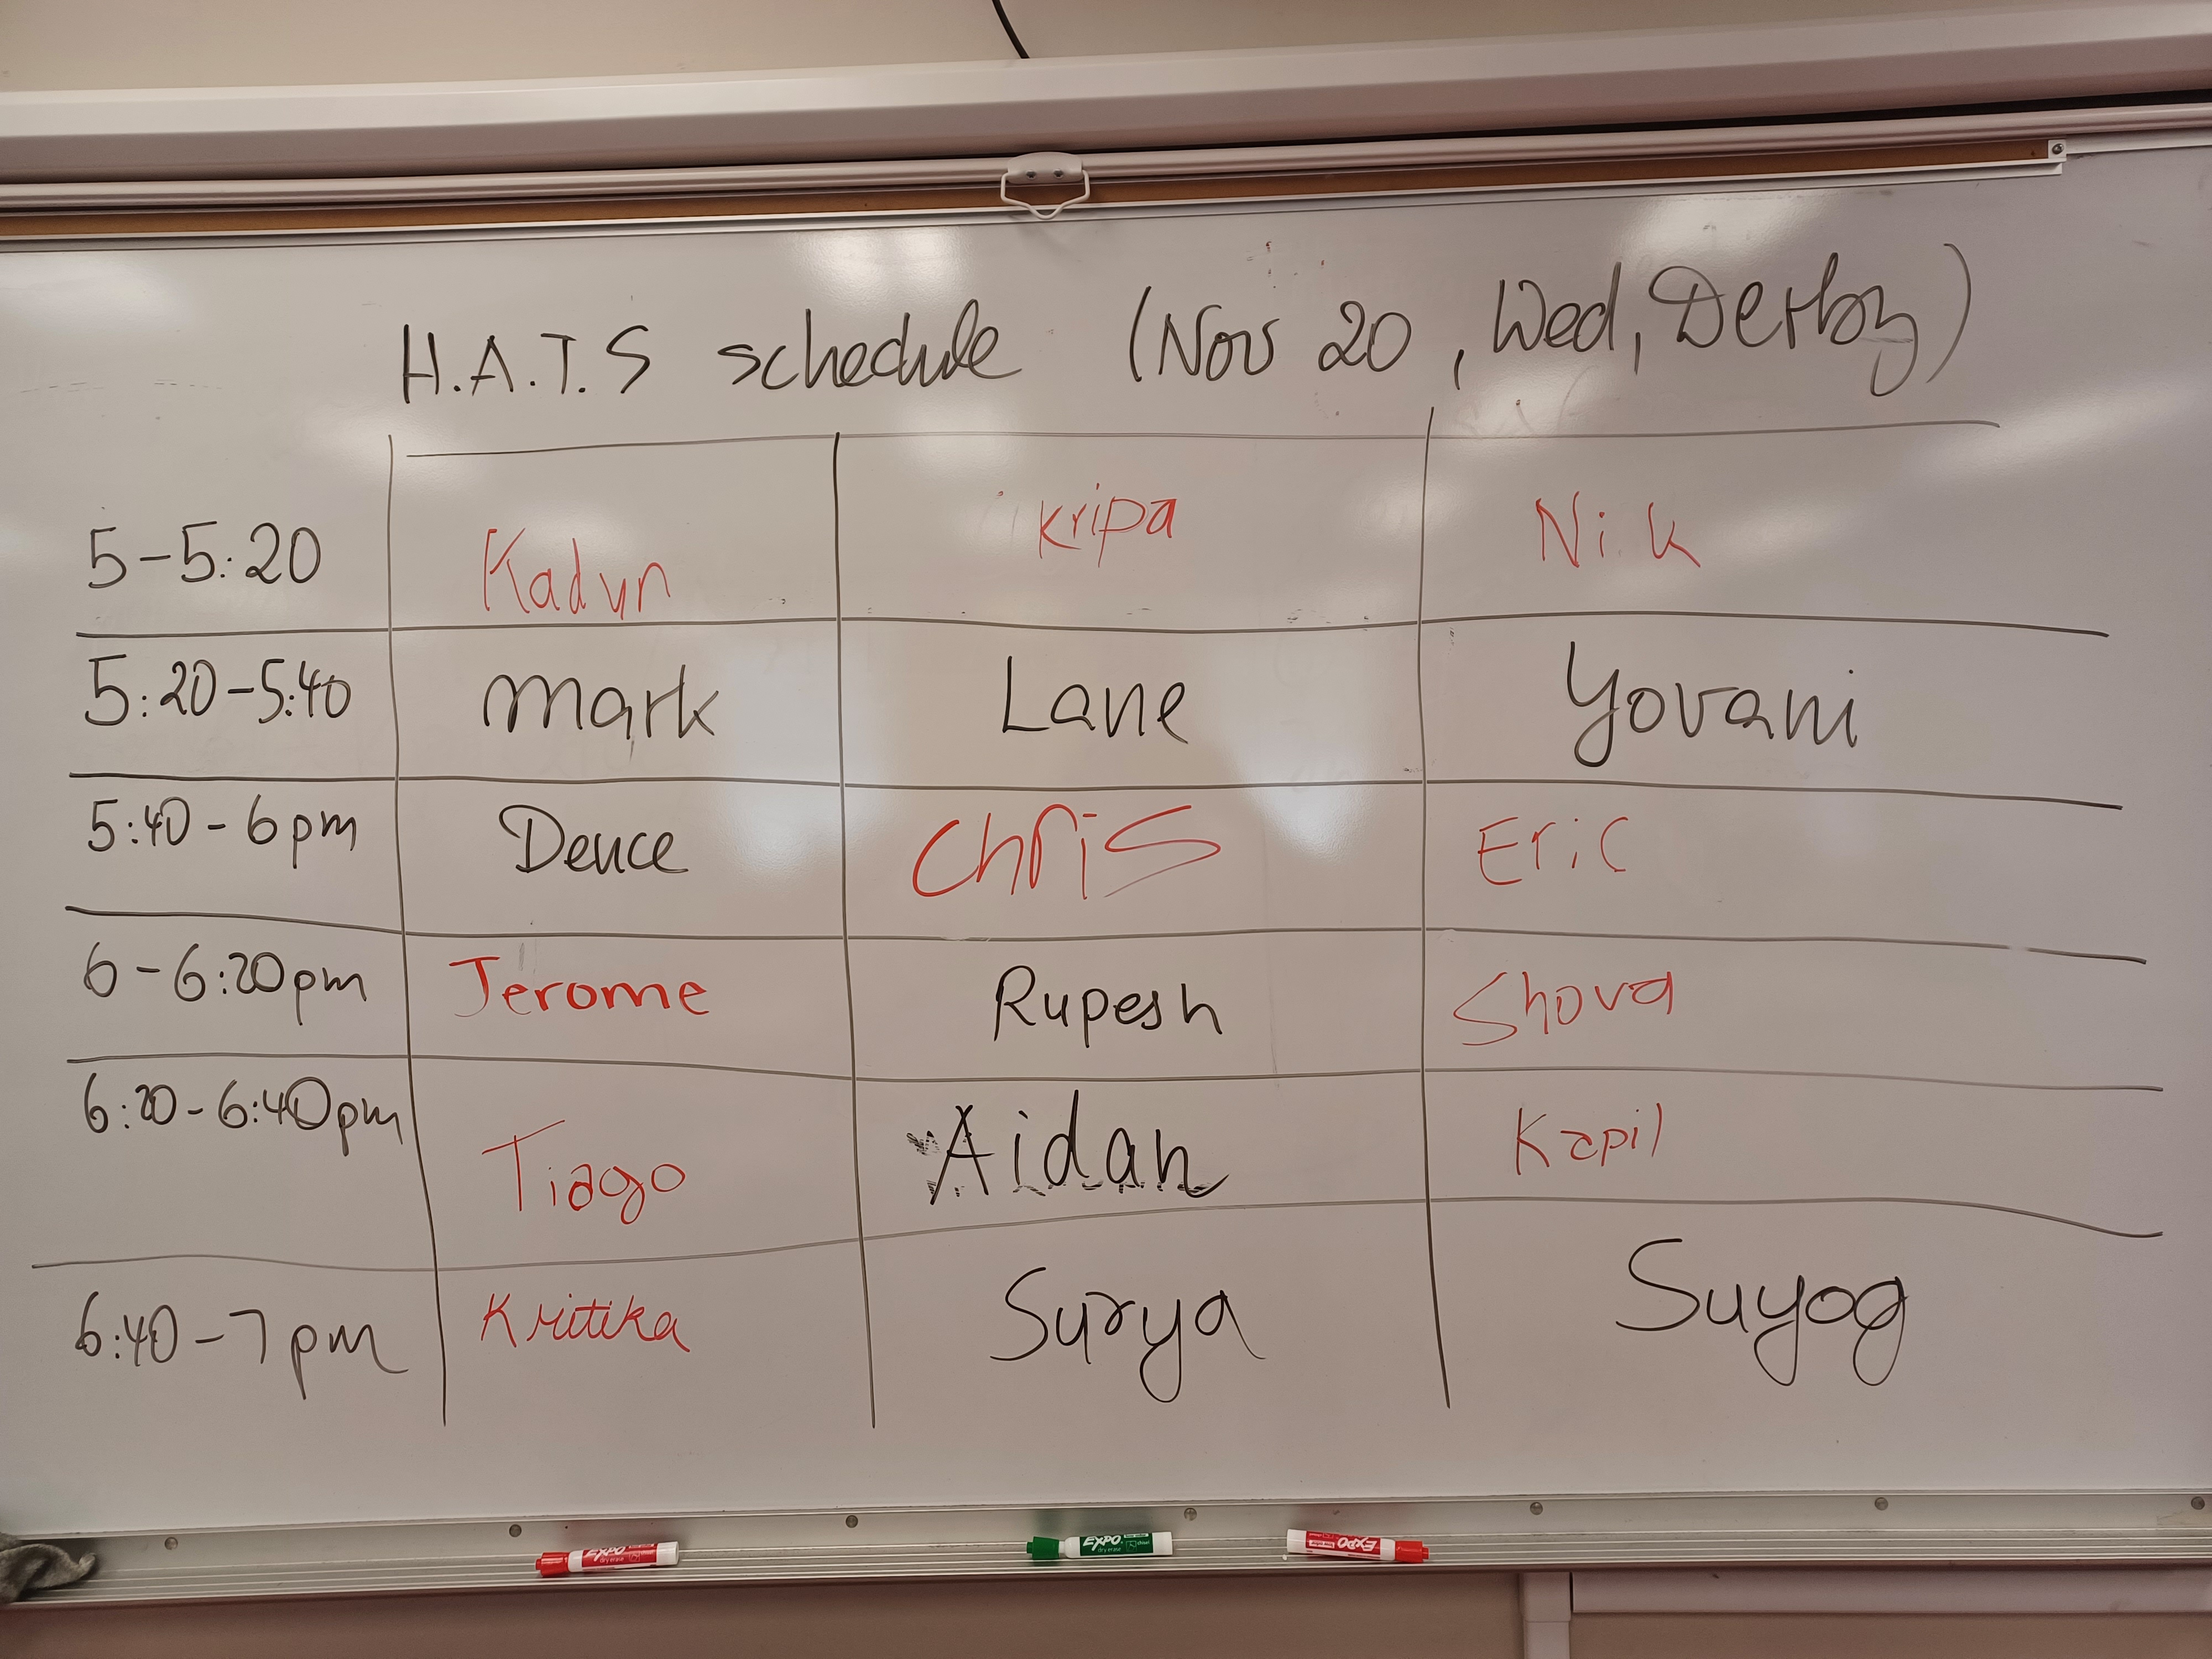 H.A.T.S schedule (Nov 20, Wed, Derby)
5-5:20 Kadyn Kripa Nick
5:20-5:40 Mark Lane Yovani
5:40-6pm Deuce Chris Eric
6-6:20pm Jerome Rupesh Shova
6:20-6:40pm Tiago Aidan Kapil
6:40-7pm Kritika Surya Suyog
EXPO EXPO EXPO
dry erase